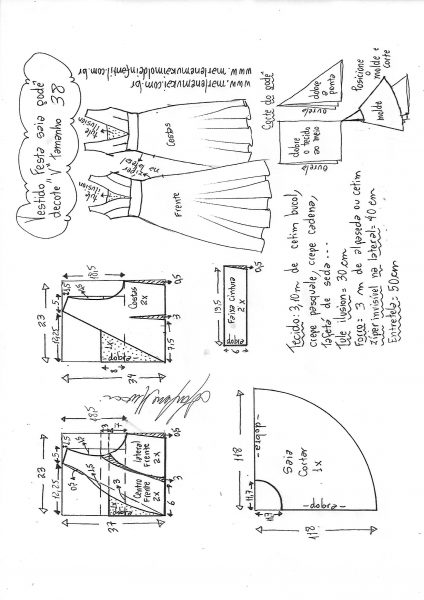 Vestido Festa saia godê
decote "V" Tamanho 38
www.marlenemukai.com.br
www.marlenemukaimoldeinfantil.com.br
tule
ilusion
Costas
zíper
na lateral
tule
ilusion
Frente
Corte do godê
dobre
o tecido
ao meio
ourela
dobre
a ponta
ourela
Posicione
o molde e
corte
molde
Tecido: 3,10 m de cetim bucol,
crepe pasquale, crepe cadena,
tafetá de seda...
Tule ilusion = 30 cm
Forro: 3 m de alpaseda ou cetim
zíper invisível na lateral = 40 cm
Entretela = 50cm
23
12,25
5
1,5
18,5
Costas
2x
0,5
3
7,5
8
dobra
34
19,5
0,5
Faixa cintura
2x
dobra
6
23
12,25
5
1,5
18,5
0,5
1,5
3
7
Lateral
Frente
2x
Centro
Frente
2x
1x
dobra
0,5
3
6
37
118
-dobra-
11,7
11,7
Saia
Cortar
1x
-dobra-
118